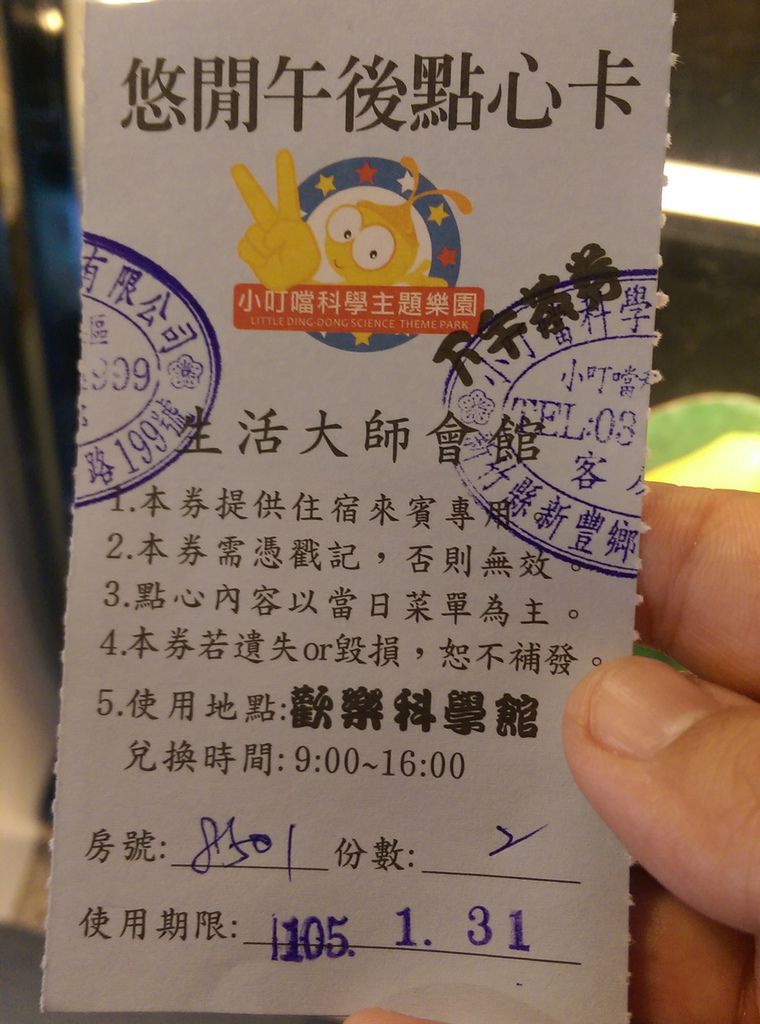 悠閒午後點心卡
小叮噹科學主題樂園
LITTLE DING-DONG SCIENCE THEME PARK
下午茶券
有限公司
區
999
路199號
小叮噹科學
小叮噹
TEL:03
客
竹縣新豐鄉
生活大師會館
1.本券提供住宿來賓專用。
2.本券需憑戳記，否則無效。
3.點心內容以當日菜單為主。
4.本券若遺失or毀損，恕不補發。
5.使用地點:歡樂科學館
兌換時間:9:00~16:00
房號: 8501 份數: 2
使用期限: 105. 1. 31